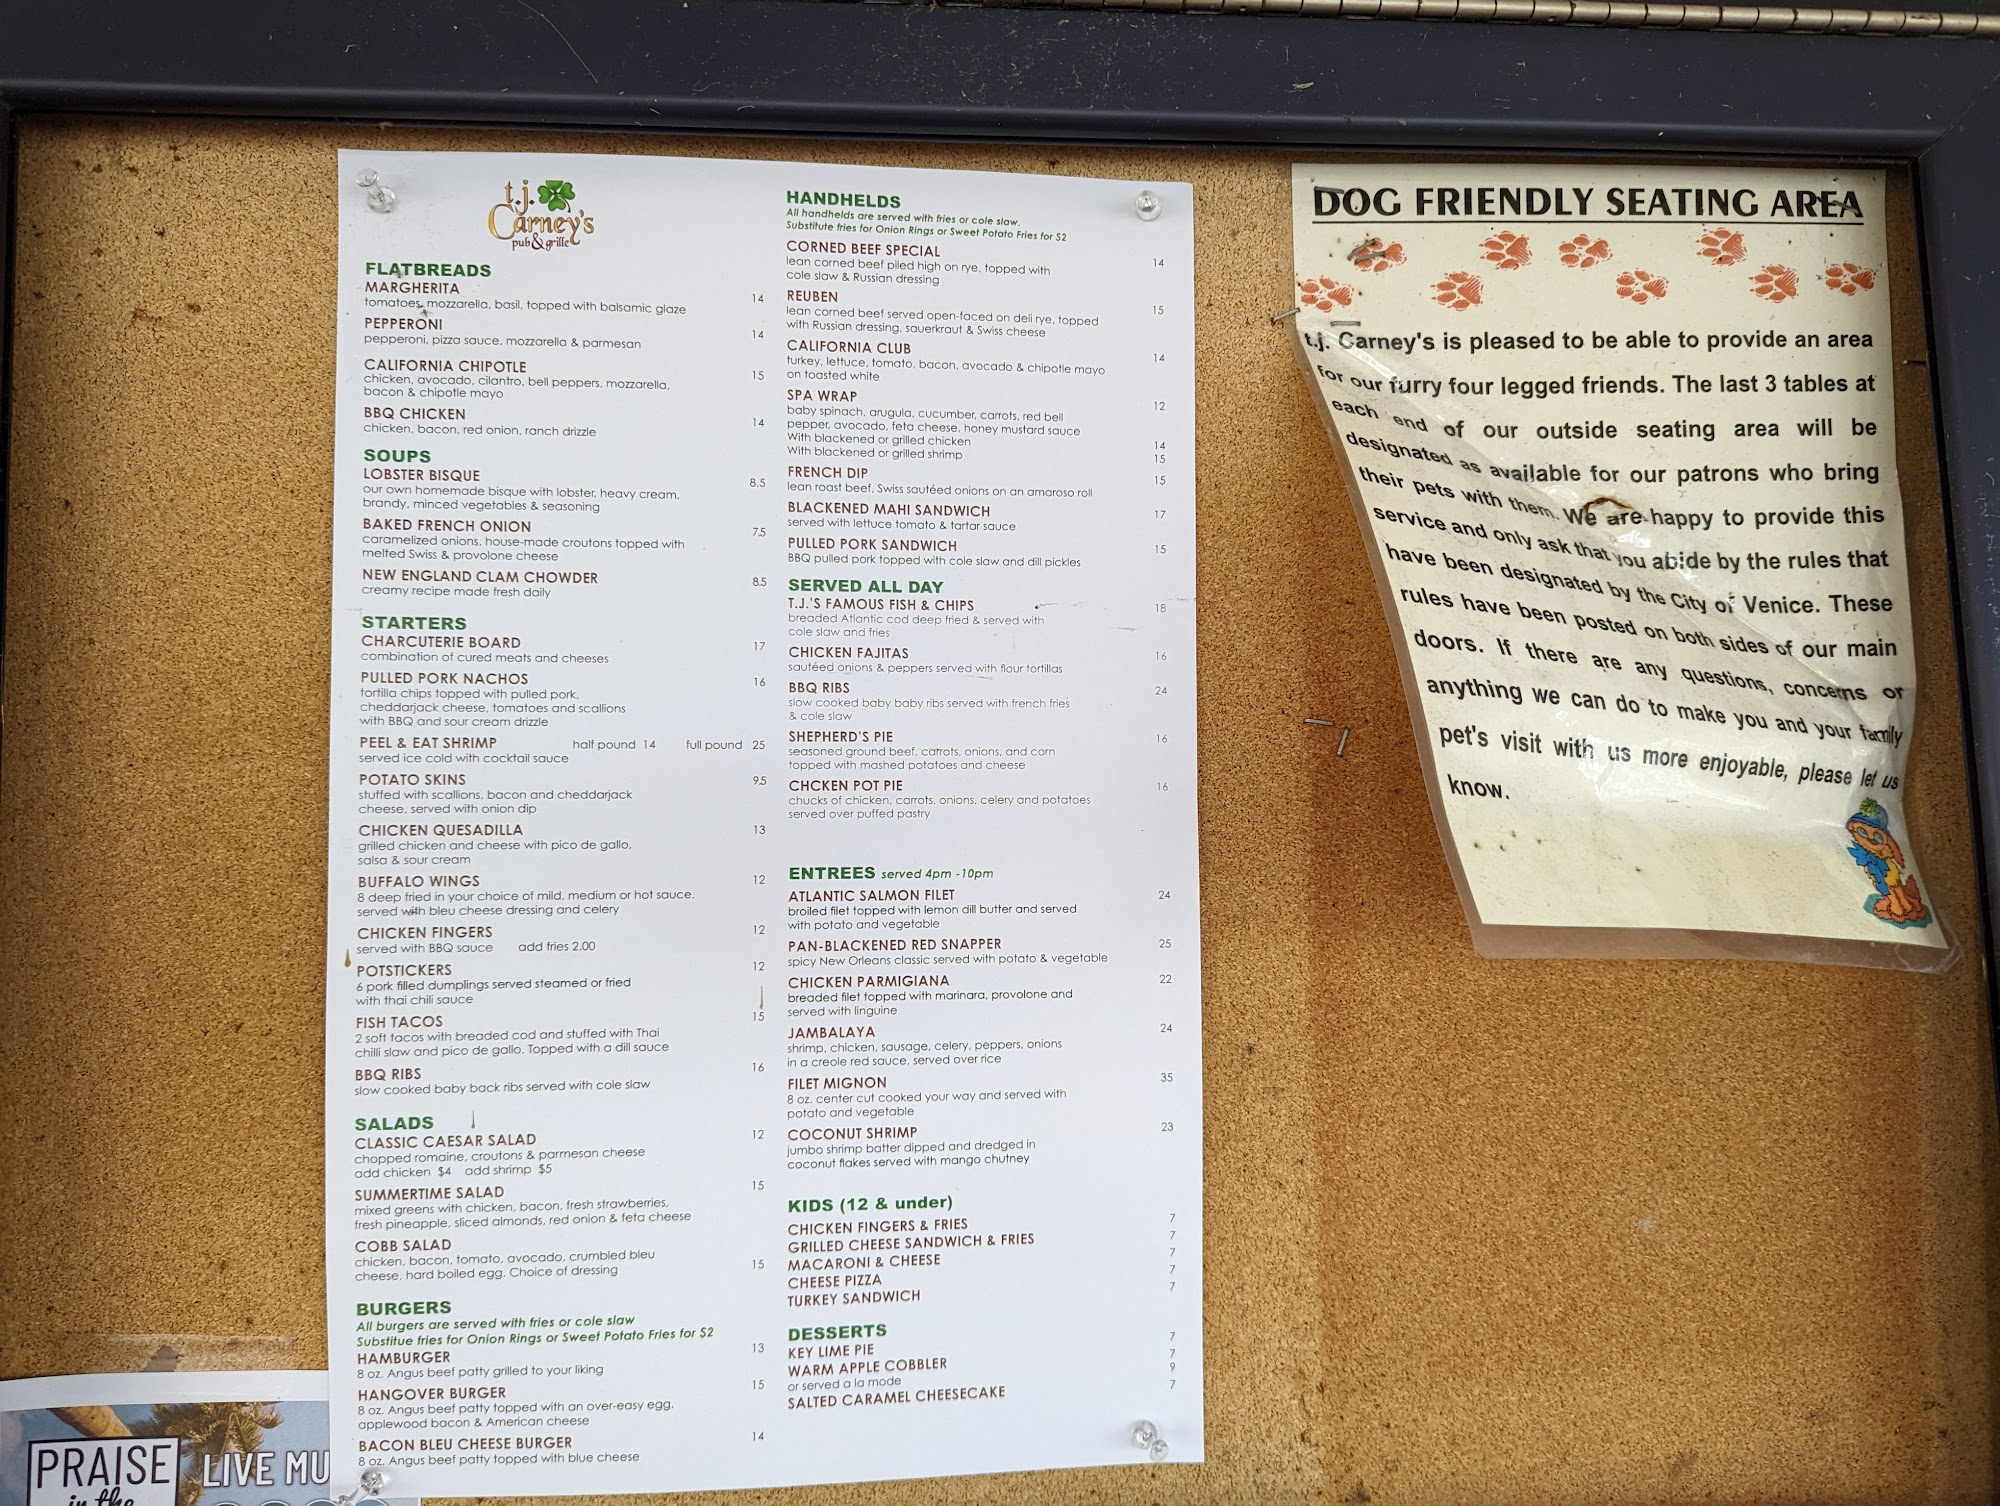 t.j.
Carney's
pub & grille
FLATBREADS
MARGHERITA
tomatoes, mozzarella, basil, topped with balsamic glaze 14
PEPPERONI
pepperoni, pizza sauce, mozzarella & parmesan 14
CALIFORNIA CHIPOTLE
chicken, avocado, cilantro, bell peppers, mozzarella, 15
bacon & chipotle mayo
BBQ CHICKEN
chicken, bacon, red onion, ranch drizzle 14
SOUPS
LOBSTER BISQUE 8.5
our own homemade bisque with lobster, heavy cream,
brandy, minced vegetables & seasoning
BAKED FRENCH ONION 7.5
caramelized onions, house-made croutons topped with
melted Swiss & provolone cheese
NEW ENGLAND CLAM CHOWDER 8.5
creamy recipe made fresh daily
STARTERS
CHARCUTERIE BOARD 17
combination of cured meats and cheeses
PULLED PORK NACHOS 16
tortilla chips topped with pulled pork,
cheddarjack cheese, tomatoes and scallions
with BBQ and sour cream drizzle
PEEL & EAT SHRIMP half pound 14 full pound 25
served ice cold with cocktail sauce
POTATO SKINS 9.5
stuffed with scallions, bacon and cheddarjack
cheese, served with onion dip
CHICKEN QUESADILLA 13
grilled chicken and cheese with pico de gallo,
salsa & sour cream
BUFFALO WINGS 12
8 deep fried in your choice of mild, medium or hot sauce,
served with bleu cheese dressing and celery
CHICKEN FINGERS 12
served with BBQ sauce add fries 2.00
POTSTICKERS 12
6 pork filled dumplings served steamed or fried
with thai chili sauce
FISH TACOS 15
2 soft tacos with breaded cod and stuffed with Thai
chilli slaw and pico de gallo. Topped with a dill sauce
BBQ RIBS 16
slow cooked baby back ribs served with cole slaw
SALADS
CLASSIC CAESAR SALAD 12
chopped romaine, croutons & parmesan cheese
add chicken $4 add shrimp $5
SUMMERTIME SALAD 15
mixed greens with chicken, bacon, fresh strawberries,
fresh pineapple, sliced almonds, red onion & feta cheese
COBB SALAD
chicken, bacon, tomato, avocado, crumbled bleu 15
cheese, hard boiled egg. Choice of dressing
BURGERS
All burgers are served with fries or cole slaw
Substitue fries for Onion Rings or Sweet Potato Fries for $2
HAMBURGER 13
8 oz. Angus beef patty grilled to your liking
HANGOVER BURGER 15
8 oz. Angus beef patty topped with an over-easy egg,
applewood bacon & American cheese
BACON BLEU CHEESE BURGER 14
8 oz. Angus beef patty topped with blue cheese
HANDHELDS
All handhelds are served with fries or cole slaw.
Substitute fries for Onion Rings or Sweet Potato Fries for $2
CORNED BEEF SPECIAL 14
lean corned beef piled high on rye, topped with
cole slaw & Russian dressing
REUBEN 15
lean corned beef served open-faced on deli rye, topped
with Russian dressing, sauerkraut & Swiss cheese
CALIFORNIA CLUB 14
turkey, lettuce, tomato, bacon, avocado & chipotle mayo
on toasted white
SPA WRAP 12
baby spinach, arugula, cucumber, carrots, red bell
pepper, avocado, feta cheese, honey mustard sauce
With blackened or grilled chicken 14
With blackened or grilled shrimp 15
FRENCH DIP 15
lean roast beef, Swiss sautéed onions on an amaroso roll
BLACKENED MAHI SANDWICH 17
served with lettuce tomato & tartar sauce
PULLED PORK SANDWICH 15
BBQ pulled pork topped with cole slaw and dill pickles
SERVED ALL DAY
T.J.'S FAMOUS FISH & CHIPS 18
breaded Atlantic cod deep fried & served with
cole slaw and fries
CHICKEN FAJITAS 16
sautéed onions & peppers served with flour tortillas
BBQ RIBS 24
slow cooked baby baby ribs served with french fries
& cole slaw
SHEPHERD'S PIE 16
seasoned ground beef, carrots, onions, and corn
topped with mashed potatoes and cheese
CHCKEN POT PIE 16
chucks of chicken, carrots, onions, celery and potatoes
served over puffed pastry
ENTREES served 4pm -10pm
ATLANTIC SALMON FILET 24
broiled filet topped with lemon dill butter and served
with potato and vegetable
PAN-BLACKENED RED SNAPPER 25
spicy New Orleans classic served with potato & vegetable
CHICKEN PARMIGIANA 22
breaded filet topped with marinara, provolone and
served with linguine
JAMBALAYA 24
shrimp, chicken, sausage, celery, peppers, onions
in a creole red sauce, served over rice
FILET MIGNON 35
8 oz. center cut cooked your way and served with
potato and vegetable
COCONUT SHRIMP 23
jumbo shrimp batter dipped and dredged in
coconut flakes served with mango chutney
KIDS (12 & under)
CHICKEN FINGERS & FRIES 7
GRILLED CHEESE SANDWICH & FRIES 7
MACARONI & CHEESE 7
CHEESE PIZZA 7
TURKEY SANDWICH 7
DESSERTS
KEY LIME PIE 7
WARM APPLE COBBLER 7
or served a la mode 9
SALTED CARAMEL CHEESECAKE 7
DOG FRIENDLY SEATING AREA
t.j. Carney's is pleased to be able to provide an area
for our furry four legged friends. The last 3 tables at
each end of our outside seating area will be
designated as available for our patrons who bring
their pets with them. We are happy to provide this
service and only ask that you abide by the rules that
have been designated by the City of Venice. These
rules have been posted on both sides of our main
doors. If there are any questions, concerns or
anything we can do to make you and your family
pet's visit with us more enjoyable, please let us
know.
PRAISE
in the
LIVE MU